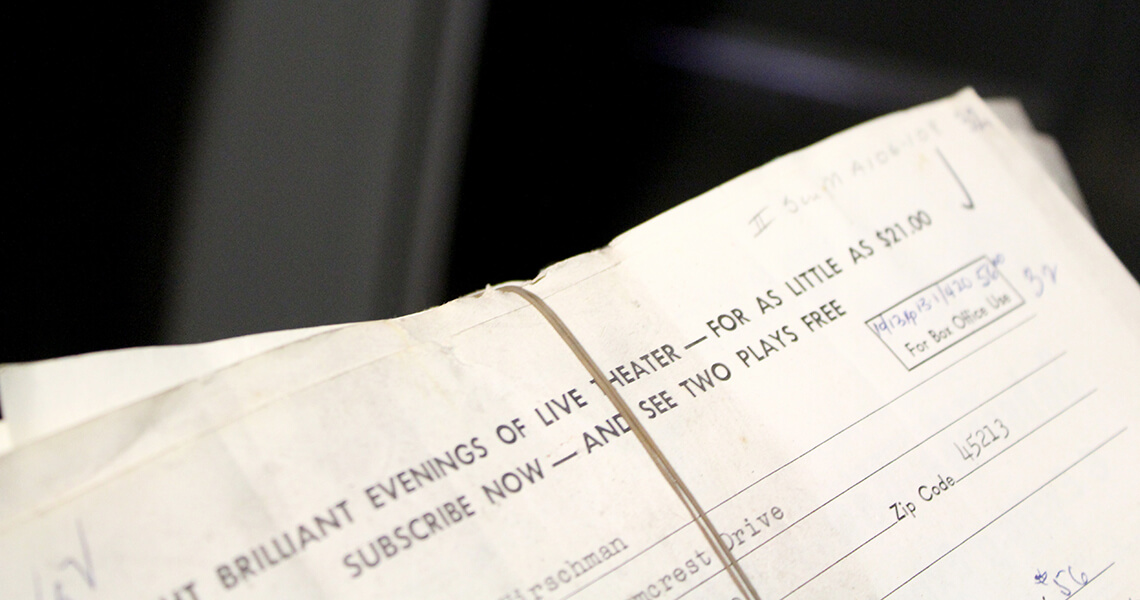 II
HT BRILLIANT EVENINGS OF LIVE THEATER — FOR AS LITTLE AS $21.00
SUBSCRIBE NOW — AND SEE TWO PLAYS FREE
For Box Office Use
32
irschman
mcrest Drive
Zip Code 45213
$56